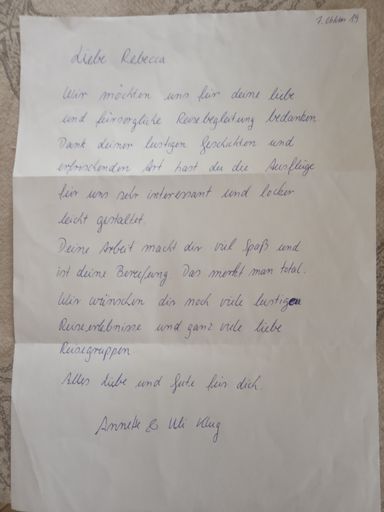 1. Oktober 19
Liebe Rebecca
Wir möchten uns für deine liebe
und fürsorgliche Reisebegleitung bedanken
Dank deiner lustigen Geschichten und
erfrischenden Art hast du die Ausflüge
für uns sehr interessant und locker
leicht gestaltet.
Deine Arbeit macht dir viel Spaß und
ist deine Berufung Das merkt man total.
Wir wünschen dir noch viele lustigen
Reiseerlebnisse und ganz viele liebe
Reisegruppen
Alles Liebe und Gute für dich.
Anneke & Uli Klug